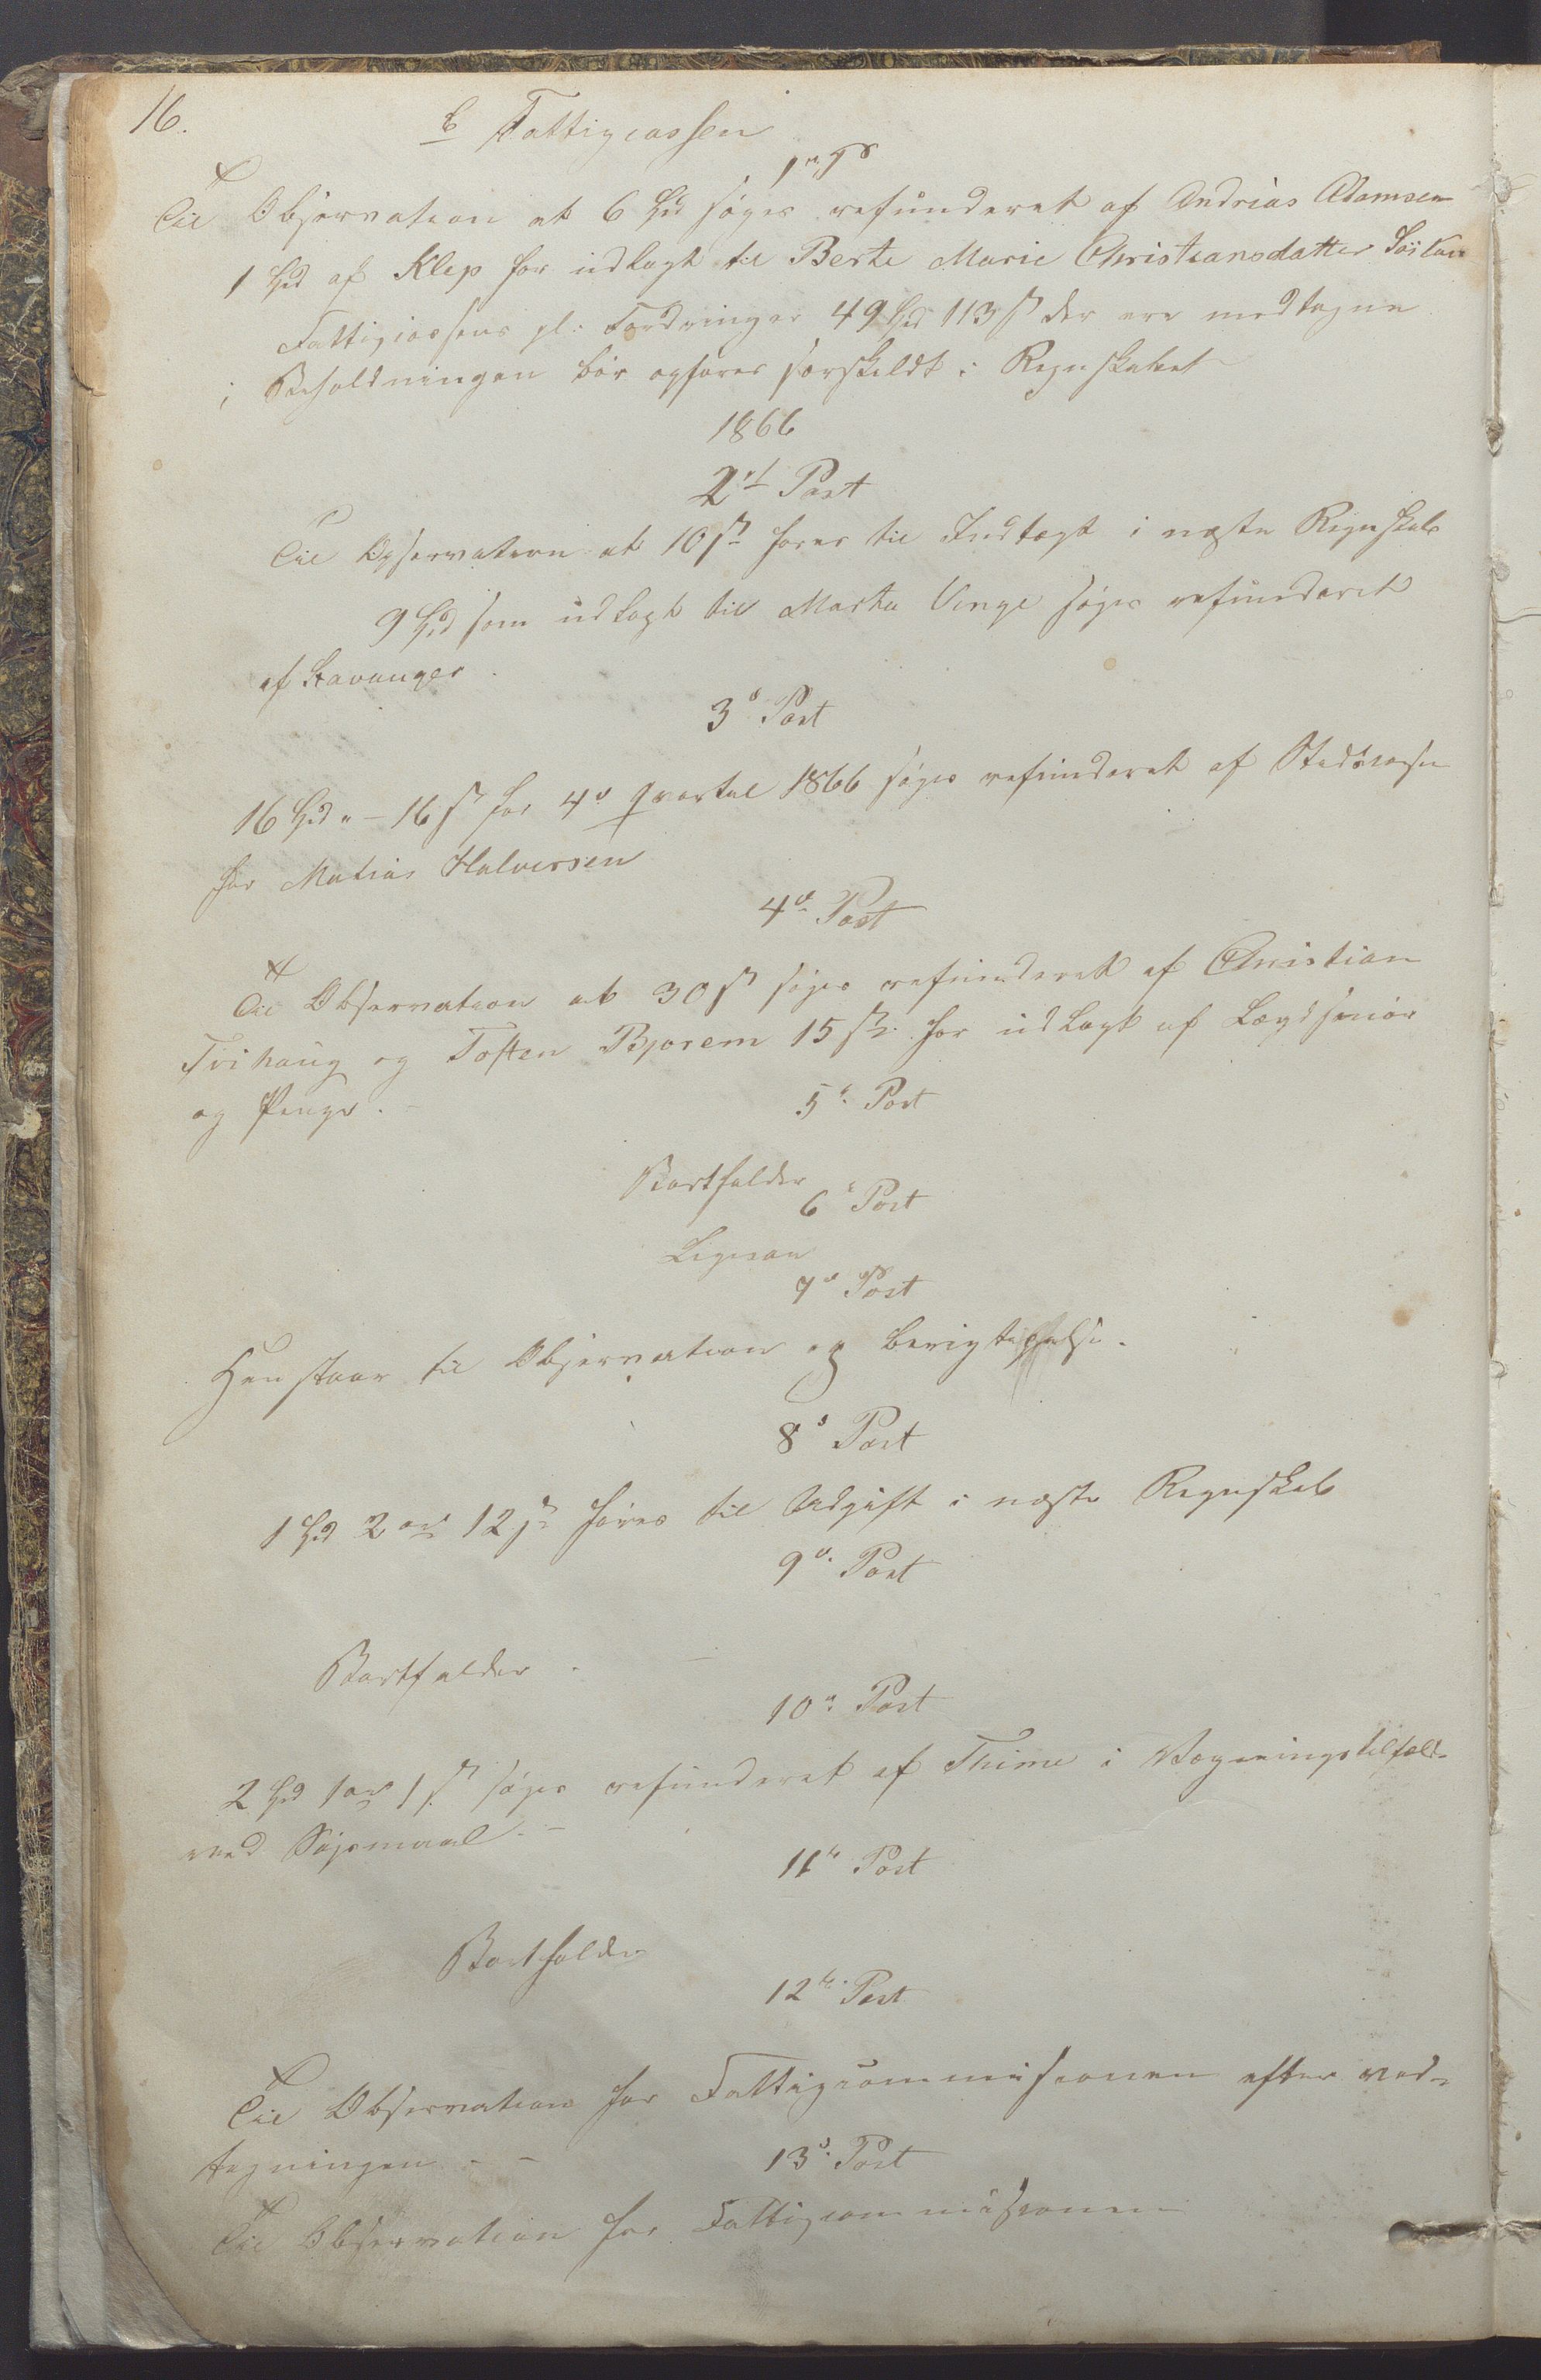 16.
b Fattigcassen
1ste P
Til Observation at 6 Spd søges refunderet af Andrias Adamsen
1 Spd af Klep for udlagt til Berte Marie Christiansdatter
Fattigcassens Fordringer 49 Spd 113 s der ere medtagne
i Beholdningen bør opføres særskildt i Regnskabet
1866
2d Post
Til Observation at 10 s føres til Indtægt i næste Regnskab
9 Spd som udlagt til Marta Vinge søges refunderet
af Stavanger.
3e Post
16 Spd " - 16 s for 4e Qvartal 1866 søges refunderet af Stedscasse
for Matias Halversen
4e Post
Til Observation at 30 s søges refunderet af Christian
Tvihaug og Tosten Bjorem 15 s for udlagt af Lægdsmør
og Penge. -
5e Post
Bortfalder
6e Post
Ligesaa
7e Post
Henstaar til Observation og Berigtigelse.
8e Post
1 Spd 2 ort 12 s føres til Udgift i næste Regnskab
9e Post
Bortfalder. -
10e Post
2 Spd 1 ort 1 s søges refunderet af Thime i Vægringstilfælde
ved Søgsmaal. -
11te Post
Bortfalder
12te Post
Til Observation for Fattigcommissionen efter ved-
tegningen - -
13de Post
Til Observation for Fattigcommissionen